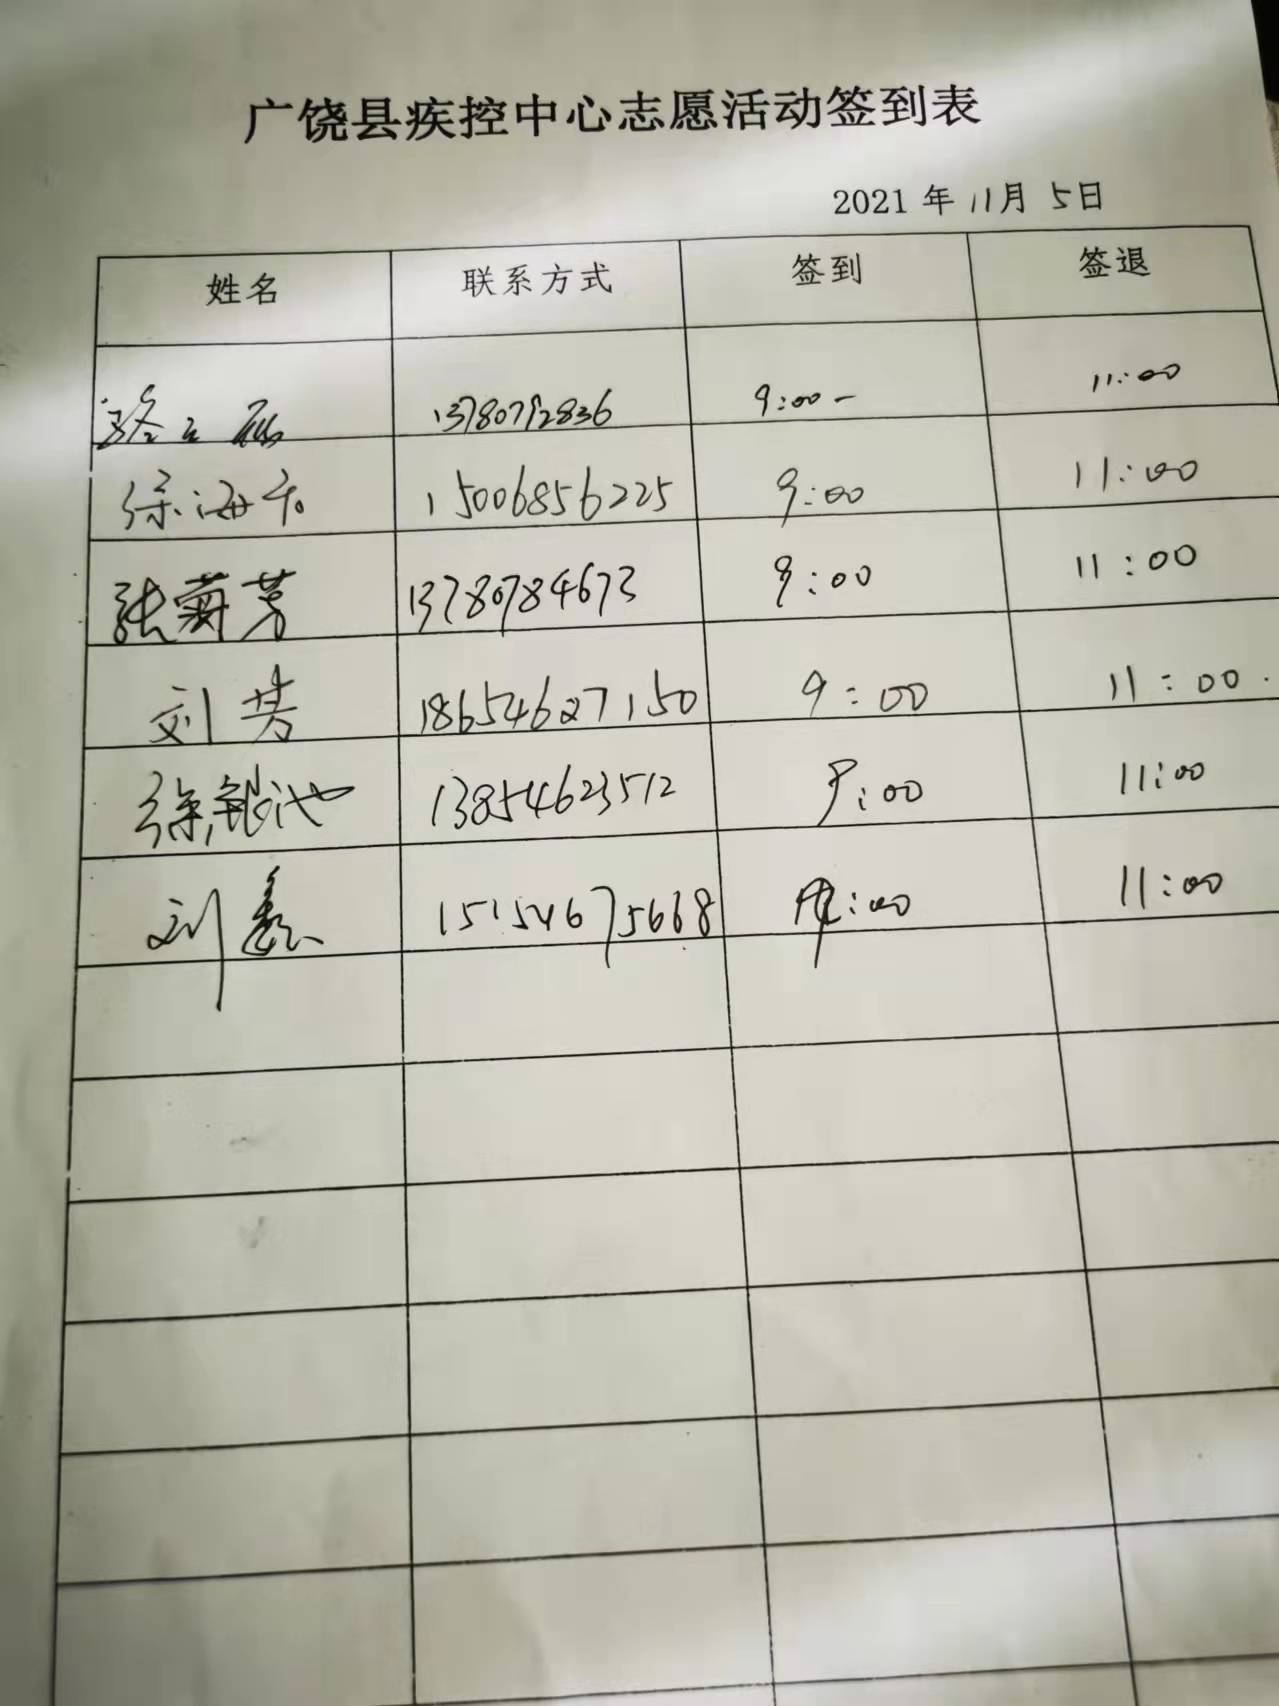 广饶县疾控中心志愿活动签到表
2021 年 11月 5日
姓名 联系方式 签到 签退
路 13780792836 9:00- 11:00
徐海 15006856225 9:00 11:00
张菊芳 13780784673 9:00 11:00
刘芳 18654627150 9:00 11:00.
徐银池 13854623512 9:00 11:00
刘鑫 15154675668 9:00 11:00